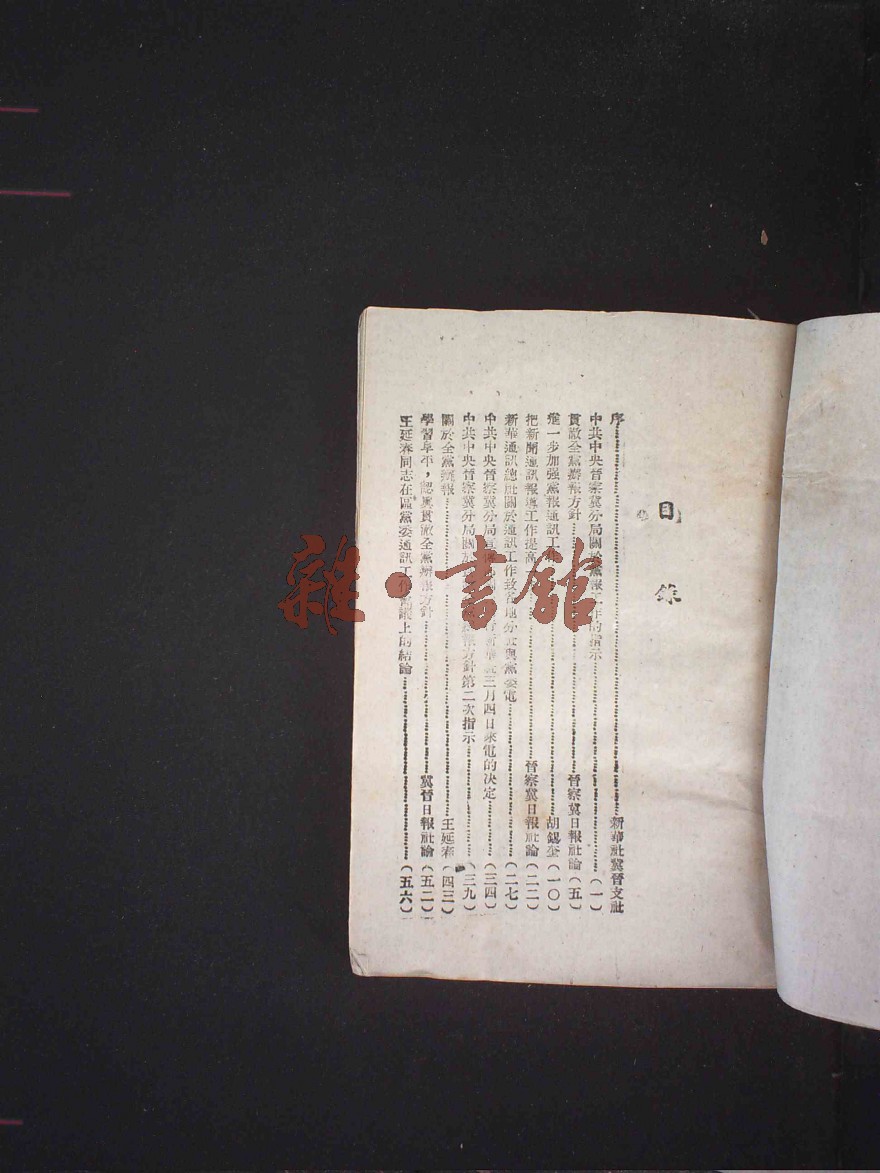 目錄
序……新華社冀晉支社
中共中央晉察冀分局關於黨報工作的指示……(一)
貫澈全黨辦報方針……晉察冀日報社論(五)
進一步加强黨報通訊工作……胡錫奎(一〇)
把新聞通訊報導工作提高……晉察冀日報社論(二二)
新華通訊總社關於通訊工作致各地分社與黨委電……(二七)
中共中央晉察冀分局宣傳部 三月四日來電的决定……(三四)
中共中央晉察冀分局關於 辦報方針第二次指示……(三九)
關於全黨辦報……王延春(四三)
學習阜平，認眞貫澈全黨辦報方針……冀晉日報社論(五二)
王延春同志在區黨委通訊工作會議上的結論……(五六)
雜·書館